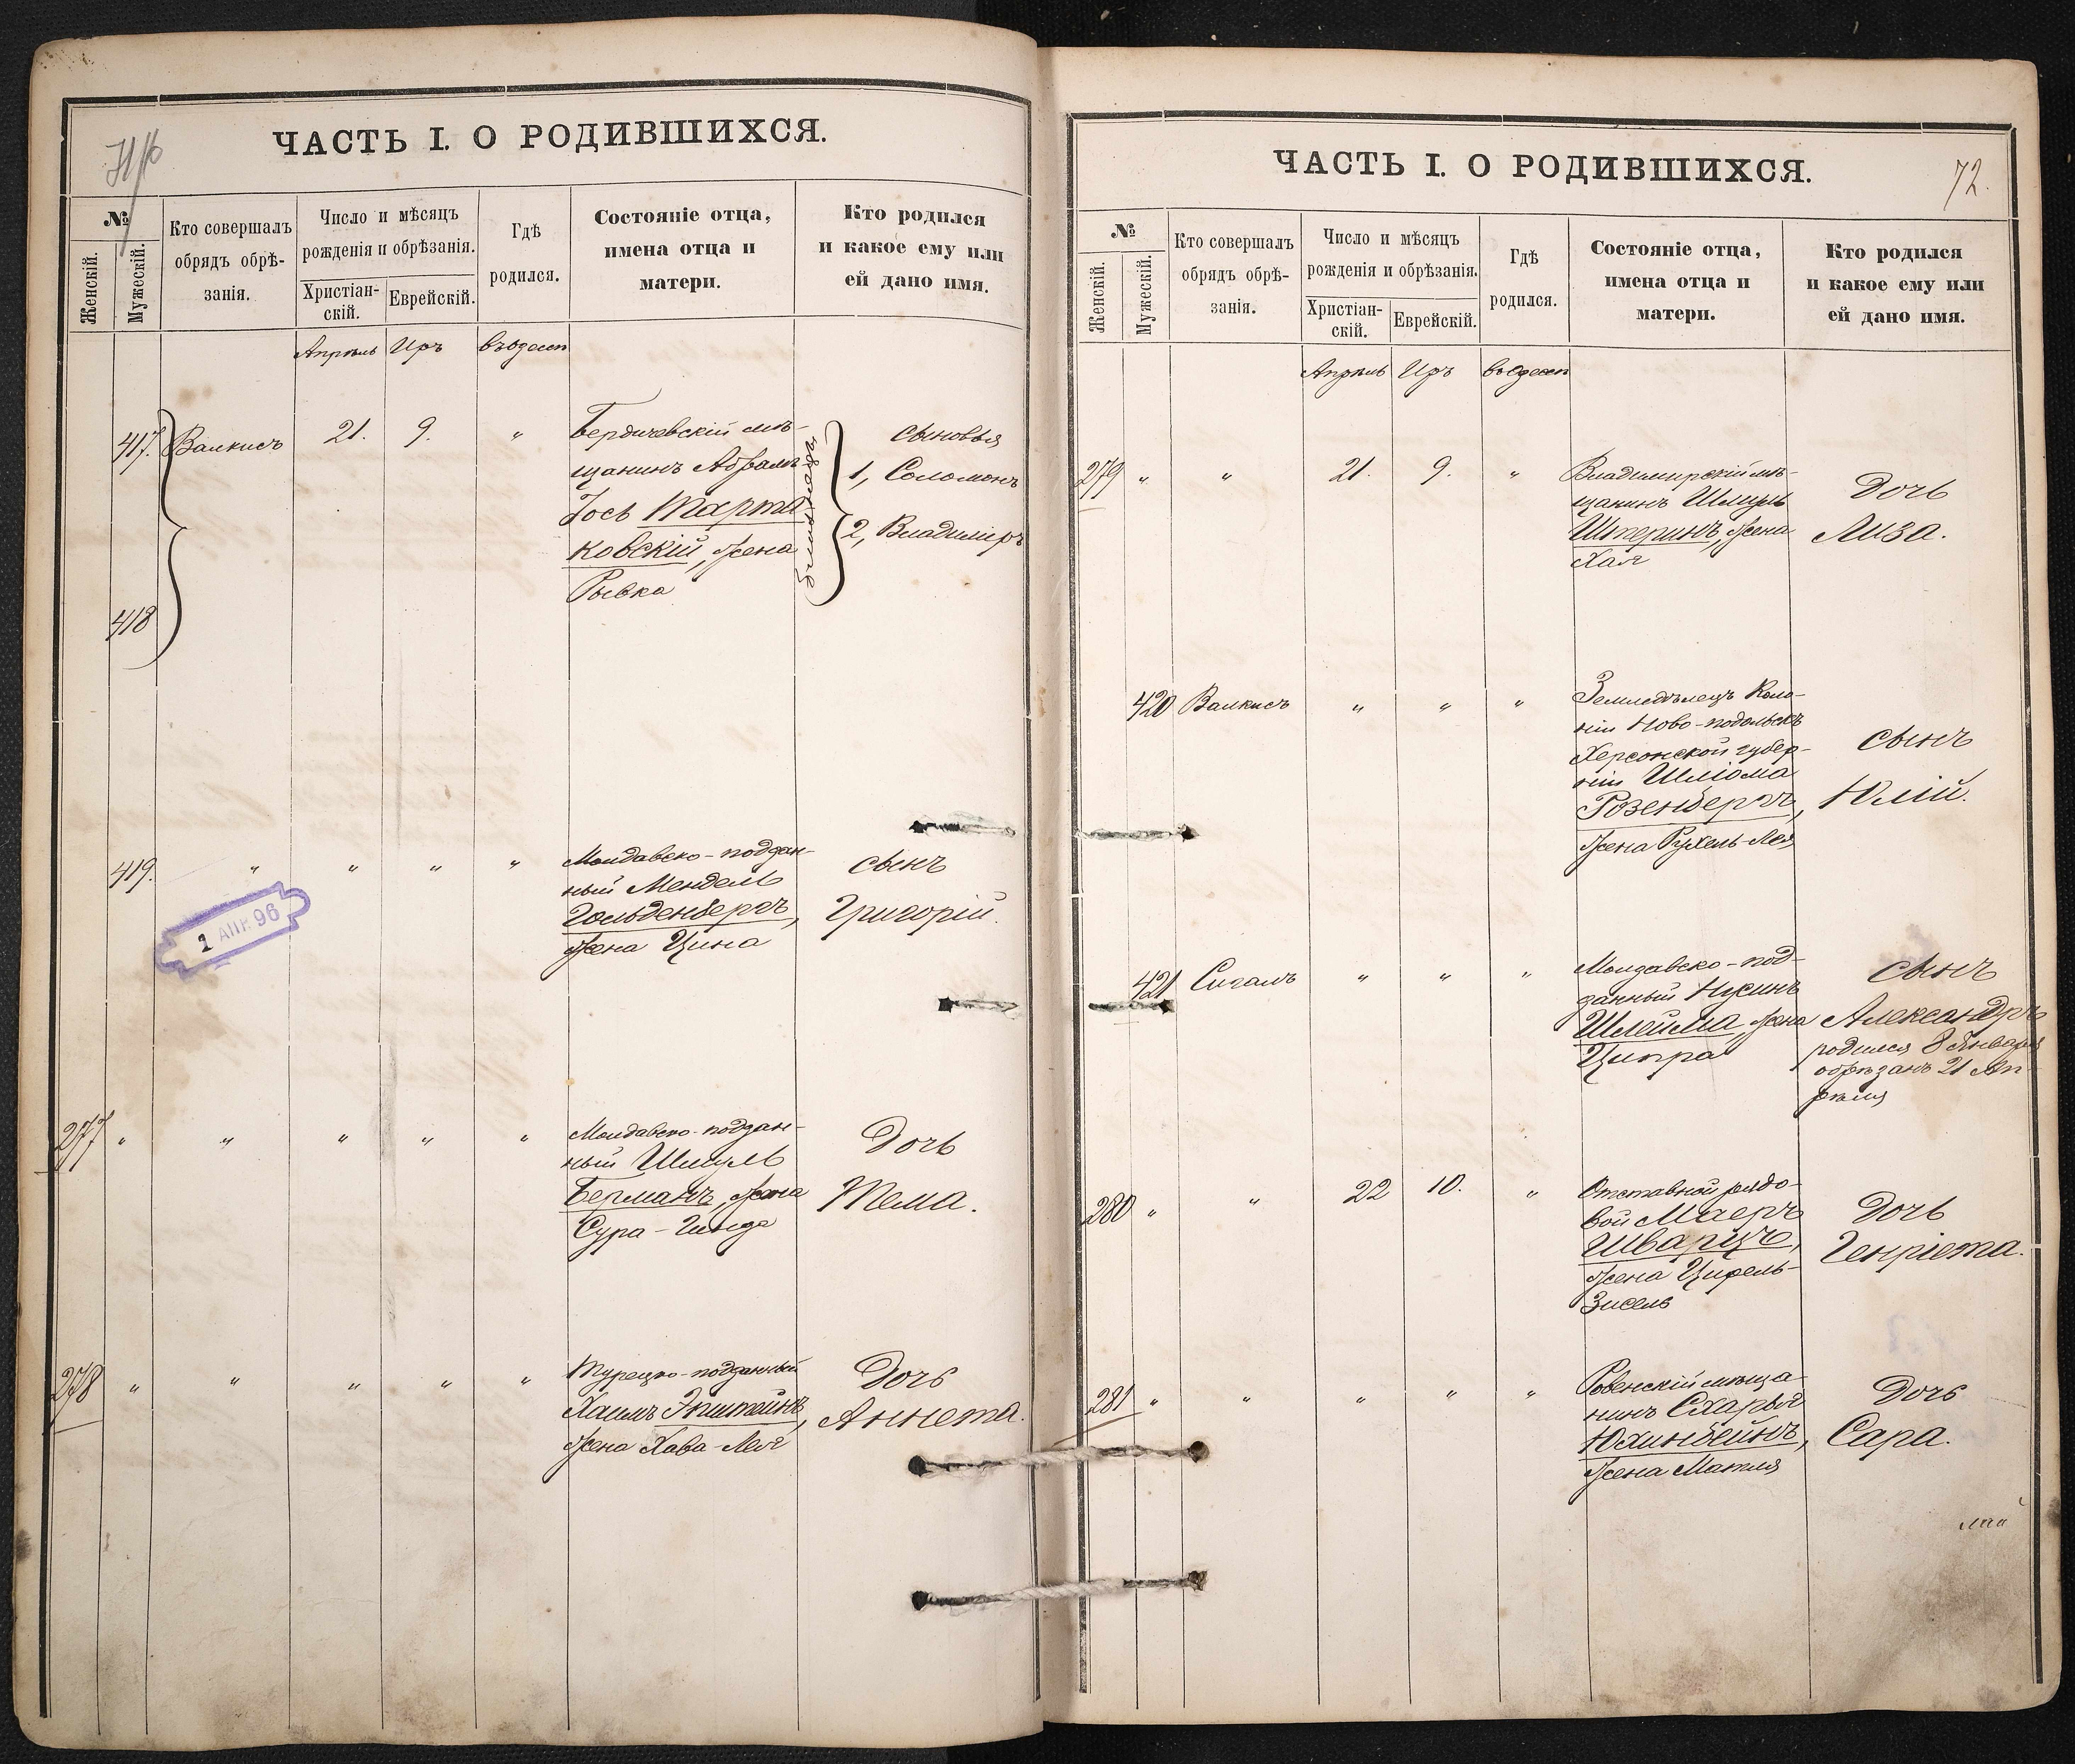 ЧАСТЬ I. О РОДИВШИХСЯ.
№
Женскій.
Мужескій.
Кто совершалъ
обрядъ обрѣ-
занія.
Число и мѣсяцъ
рожденія и обрѣзанія.
Христіан-
скій.
Еврейскій.
Гдѣ
родился.
Состояніе отца,
имена отца и
матери.
Кто родился
и какое ему или
ей дано имя.
Апрѣль Иръ
417. Валкисъ 21. 9. „
418
Бердичевскій мѣ-
щанинъ Абрамъ
Іось Тарта
ковскій, жена
Рывка
близнецы
сыновья
1, Соломонъ
2, Владиміръ
419. „ „ „ „
Молдавско-поддан-
ный Мендель
Гольденбергъ,
жена Цина
сынъ
Григорій.
1 АПР. 96
277 „ „ „ „ „
Молдавско-поддан-
ный Шмуль
Берманъ, жена
Сура-Гинда
Дочь
Тема.
278 „ „ „ „ „
Турецко-подданный
Хаимъ Эпштейнъ,
жена Хава-Лея
Дочь
Аннета.
ЧАСТЬ I. О РОДИВШИХСЯ.
72.
№
Женскій.
Мужескій.
Кто совершалъ
обрядъ обрѣ-
занія.
Число и мѣсяцъ
рожденія и обрѣзанія.
Христіан-
скій.
Еврейскій.
Гдѣ
родился.
Состояніе отца,
имена отца и
матери.
Кто родился
и какое ему или
ей дано имя.
Апрѣль Иръ
279 „ „ 21. 9. „
Владимирскій мѣ-
щанинъ Шмуль
Штеринъ, жена
Хая
Дочь
Лиза.
420 Валкисъ „ „ „
Земледѣлецъ Коло-
ніи Ново-подольскъ
Херсонской губер-
ніи Шліома
Розенбергъ,
жена Рухель-Лея
сынъ
Юлій.
421 Сигалъ „ „ „
Молдавско-под-
данный Нусинъ
Шлейма, жена
Ципра
сынъ
Александръ
родился 8 Января
обрѣзанъ 21 Ап-
рѣля
280 „ „ 22 10. „
Отставной рядо-
вой Маеръ
Шварцъ,
жена Ципель-
Зисель
Дочь
Генріета.
281 „ „ „ „ „
Ровенскій мѣща-
нинъ Схарья
Юхинбейнъ,
жена Матля
Дочь
Сара.